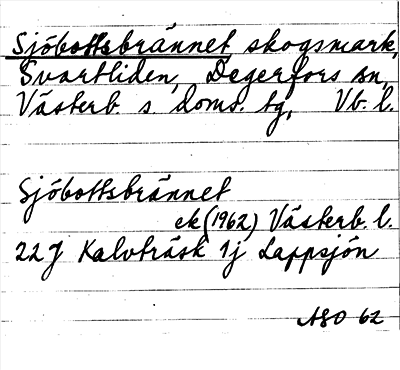 Sjöbottsbrännet skogsmark,
Svartliden, Degerfors sn,
Västerb. s. doms. tg, Vb. l.
Sjöbottsbrännet
ek (1962) Västerb. l.
22J Kalvträsk 1j Lappsjön
ASO 62